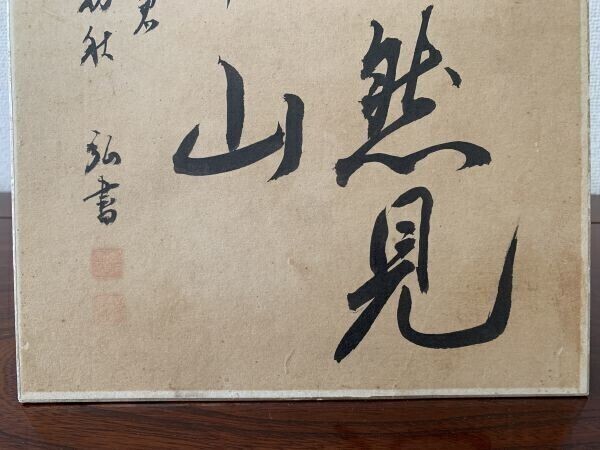 然見
山
君
初秋 弘書